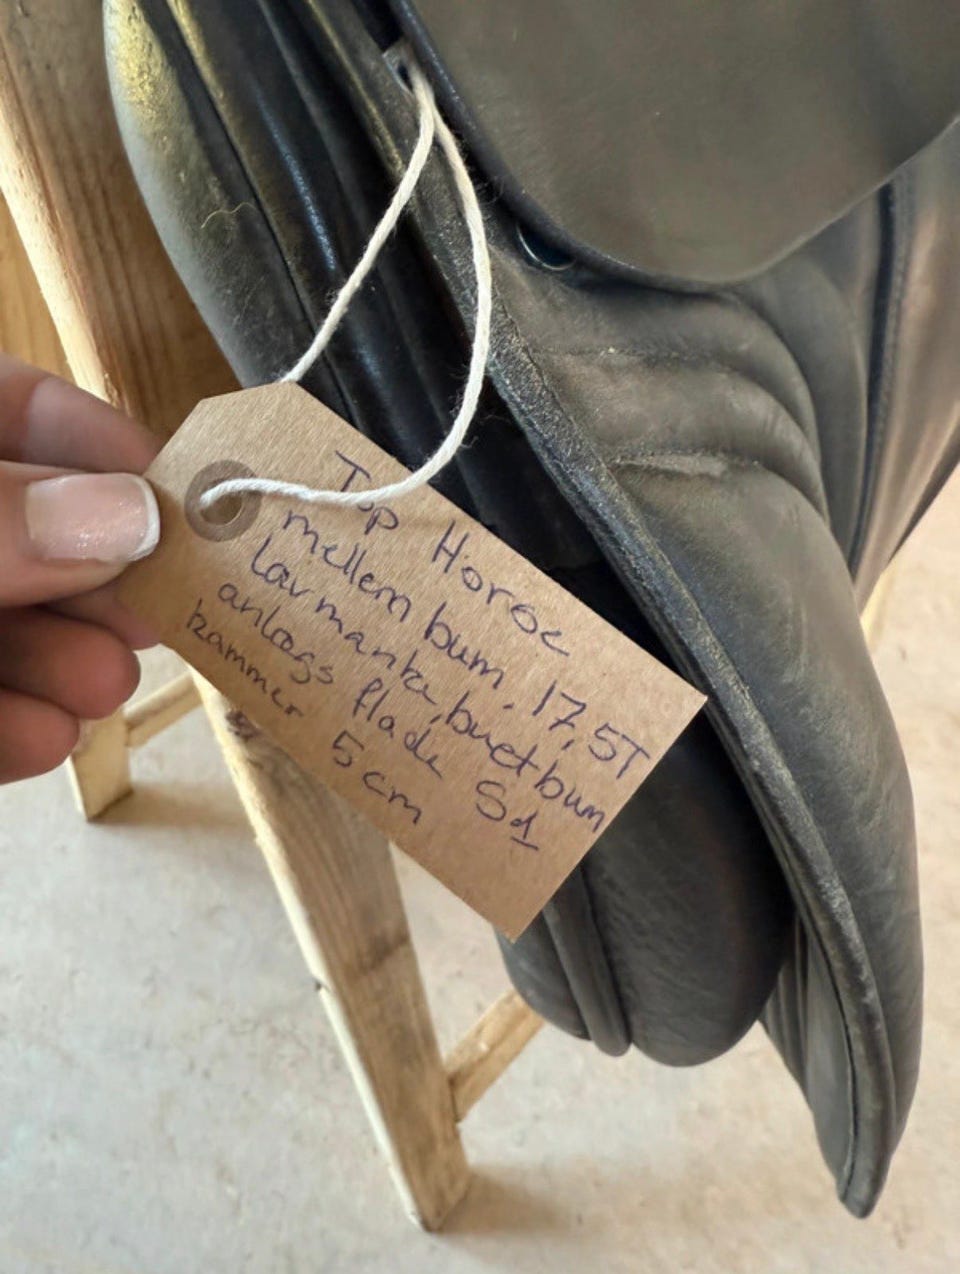 Top Horse
mellem bum. 17,5T
Lav manke, buet bum
anlægs flade Sd
kammer 5 cm